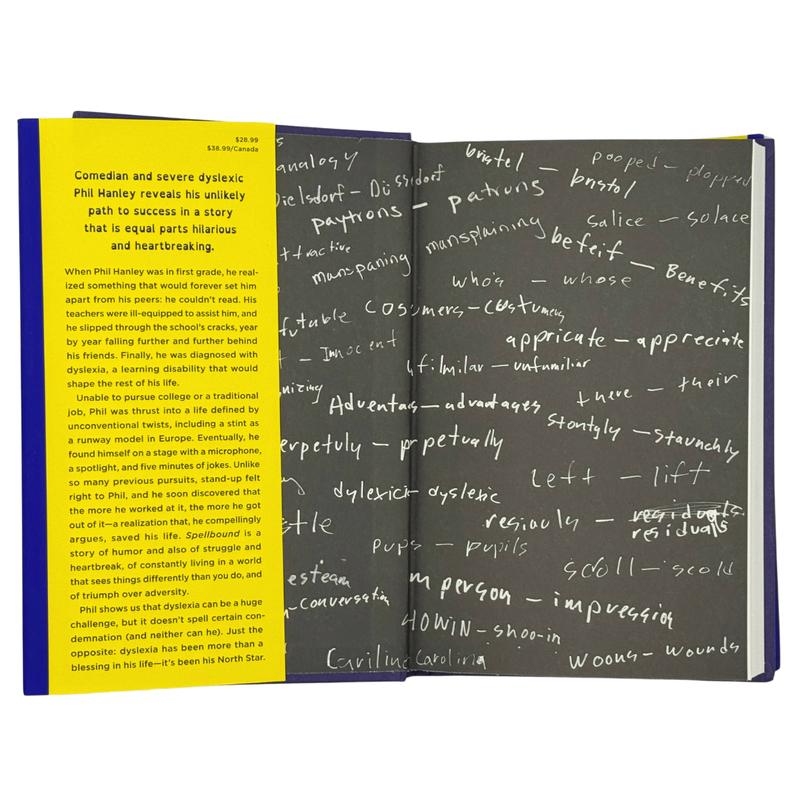 $28.99
$38.99/Canada
Comedian and severe dyslexic
Phil Hanley reveals his unlikely
path to success in a story
that is equal parts hilarious
and heartbreaking.
When Phil Hanley was in first grade, he real-
ized something that would forever set him
apart from his peers: he couldn't read. His
teachers were ill-equipped to assist him, and
he slipped through the school's cracks, year
by year falling further and further behind
his friends. Finally, he was diagnosed with
dyslexia, a learning disability that would
shape the rest of his life.
Unable to pursue college or a traditional
job, Phil was thrust into a life defined by
unconventional twists, including a stint as
a runway model in Europe. Eventually, he
found himself on a stage with a microphone,
a spotlight, and five minutes of jokes. Unlike
so many previous pursuits, stand-up felt
right to Phil, and he soon discovered that
the more he worked at it, the more he got
out of it—a realization that, he compellingly
argues, saved his life. Spellbound is a
story of humor and also of struggle and
heartbreak, of constantly living in a world
that sees things differently than you do, and
of triumph over adversity.
Phil shows us that dyslexia can be a huge
challenge, but it doesn't spell certain con-
demnation (and neither can he). Just the
opposite: dyslexia has been more than a
blessing in his life—it's been his North Star.
analogy
Dielsdorf – Düssldorf
paytrons – patruns
ttractive
manspaning mansplaining
futable
Cosumers – Costumers
– Innocent
filmilar – unfumiliar
nizing
Adventags – advantages
erpetuly – prpetually
dylexick dyslexic
stle
pups – pupils
esteam
n-Conversation
m person – impression
HOWIN – shoo-in
Cariline Carolina
bristel – bristol
pooped – plopped
salice – solace
befeif – Benefits
who's – whose
appricute – appreciate
there – their
Stontgly – Staunchly
Left – lift
resiauls – residuals
residuals
scroll – scold
Woons – wounds